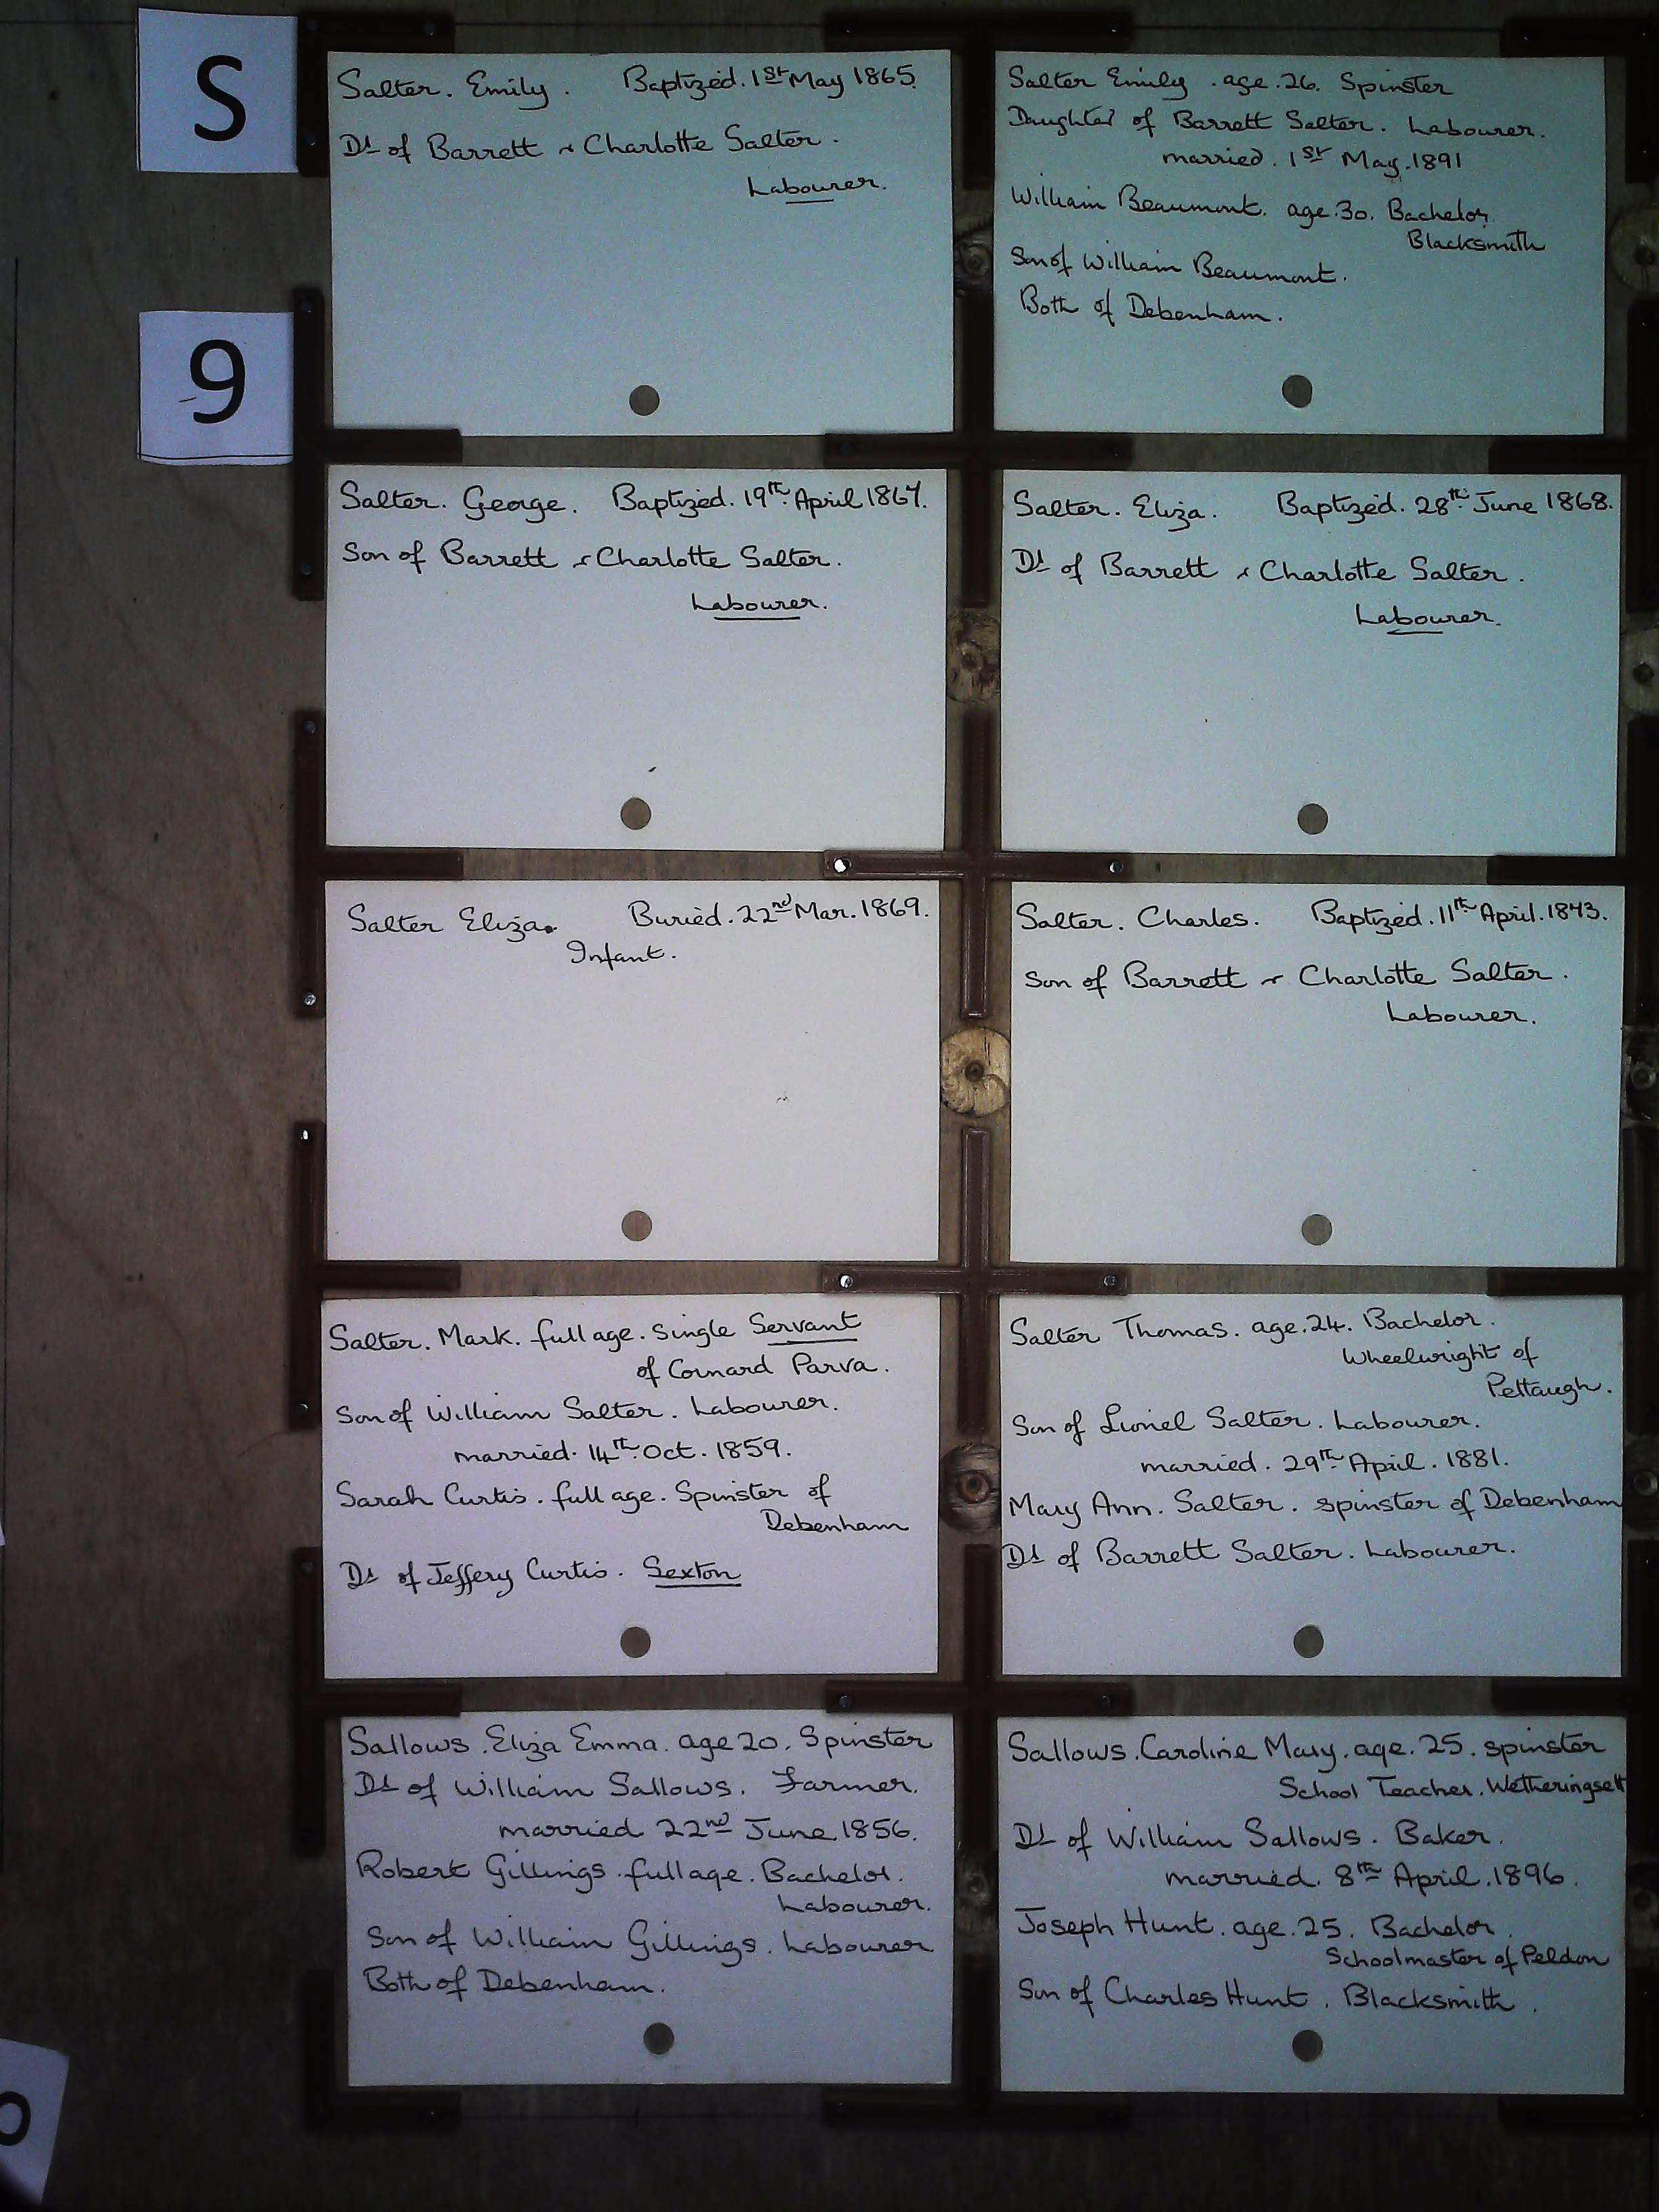 S
9
Salter. Emily. Baptized. 1st May 1865.
Dt of Barrett & Charlotte Salter.
Labourer.
Salter Emily. age. 26. Spinster
Daughter of Barrett Salter. Labourer.
married. 1st May. 1891
William Beaumont. age. 30. Bachelor,
Blacksmith
Son of William Beaumont.
Both of Debenham.
Salter. George. Baptized. 19th April 1867.
Son of Barrett & Charlotte Salter.
Labourer.
Salter. Eliza. Baptized. 28th June 1868.
Dt of Barrett & Charlotte Salter.
Labourer.
Salter Eliza. Buried. 22nd Mar. 1869.
Infant.
Salter. Charles. Baptized. 11th April. 1873.
Son of Barrett & Charlotte Salter.
Labourer.
Salter. Mark. full age. single Servant
of Cornard Parva.
Son of William Salter. Labourer.
married. 14th Oct. 1859.
Sarah Curtis. full age. Spinster of
Debenham
Dt of Jeffery Curtis. Sexton
Salter Thomas. age. 24. Bachelor.
Wheelwright of
Pettaugh.
Son of Lionel Salter. Labourer.
married. 29th April. 1881.
Mary Ann. Salter. spinster of Debenham
Dt of Barrett Salter. Labourer.
Sallows. Eliza Emma. age 20. Spinster
Dt of William Sallows. Farmer.
married 22nd June 1856.
Robert Gillings. full age. Bachelor.
Labourer.
Son of William Gillings. Labourer
Both of Debenham.
Sallows. Caroline Mary. age. 25. spinster
School Teacher. Wetheringsett
Dt of William Sallows. Baker.
married. 8th April. 1896.
Joseph Hunt. age. 25. Bachelor.
Schoolmaster of Peldon
Son of Charles Hunt. Blacksmith.